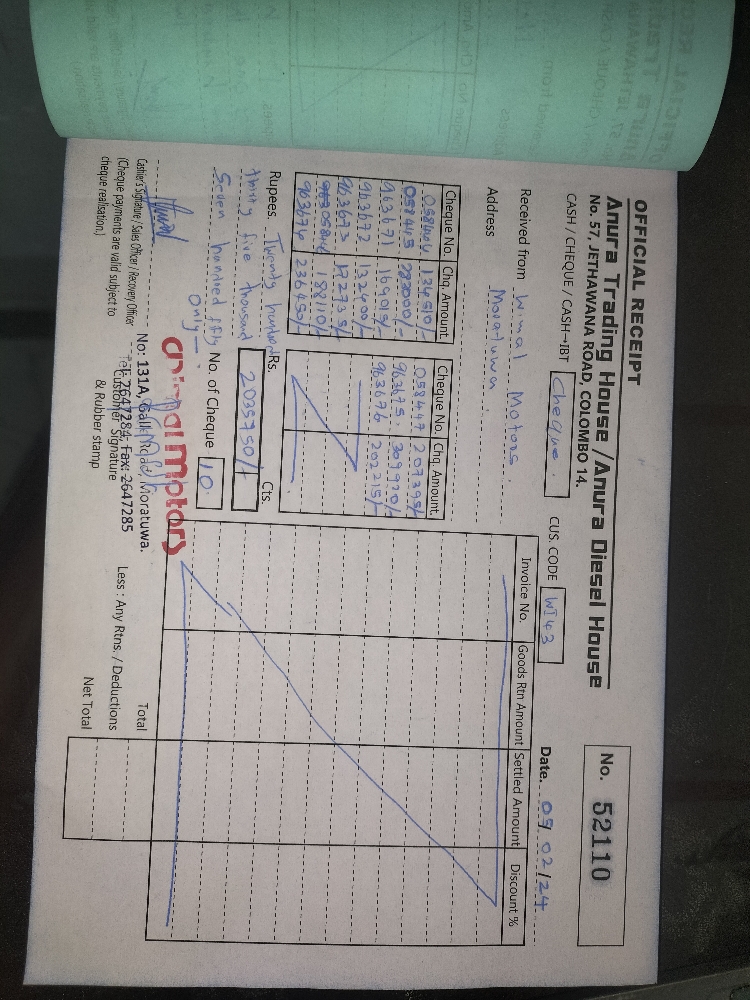 OFFICIAL RECEIPT
Anura Trading House / Anura Diesel House
No. 57, JETHAWANA ROAD, COLOMBO 14.
No. 52110
CASH / CHEQUE / CASH→IBT Cheque.
CUS. CODE WI43
Date. 09 02/24
Received from Wimal Motors.
Address Moratuwa.
Cheque No. Chq. Amount.
134510/-
058445 282000/-
963671 169015/-
963672 132400/-
963673 172735/-
188110/-
963674 236450/-
Cheque No. Chq. Amount.
058447 207395/-
963675 309920/-
963676 202215/-
Rupees. Twenty hundred
thirty five thousand
Seven hundred fifty
Only
Rs. Cts.
2035750/-
No. of Cheque 10.
Invoice No. Goods Rtn Amount Settled Amount Discount %
Total
Less : Any Rtns. / Deductions
Net Total
Cashier's Signature / Sales Officer / Recovery Officer
(Cheque payments are valid subject to
cheque realisation.)
Motors
No: 131A, Galle Road, Moratuwa.
Tel: 2647284, Fax: 2647285
Customer Signature
& Rubber stamp